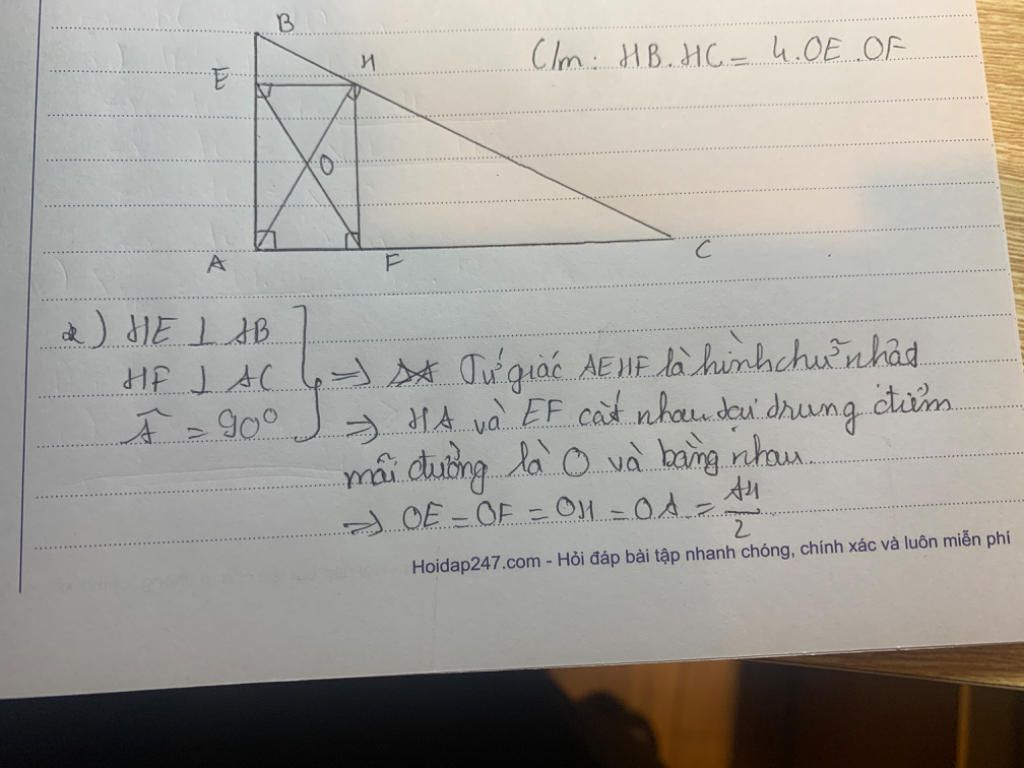 B
E
H
C/m: HB.HC = 4.OE.OF
O
A
F
C
a) HE ⊥ AB
HF ⊥ AC
Â = 90°
=> Tứ giác AEHF là hình chữ nhật
=> HA và EF cắt nhau tại trung điểm
mỗi đường là O và bằng nhau.
=> OE = OF = OH = OA = AH/2
Hoidap247.com - Hỏi đáp bài tập nhanh chóng, chính xác và luôn miễn phí